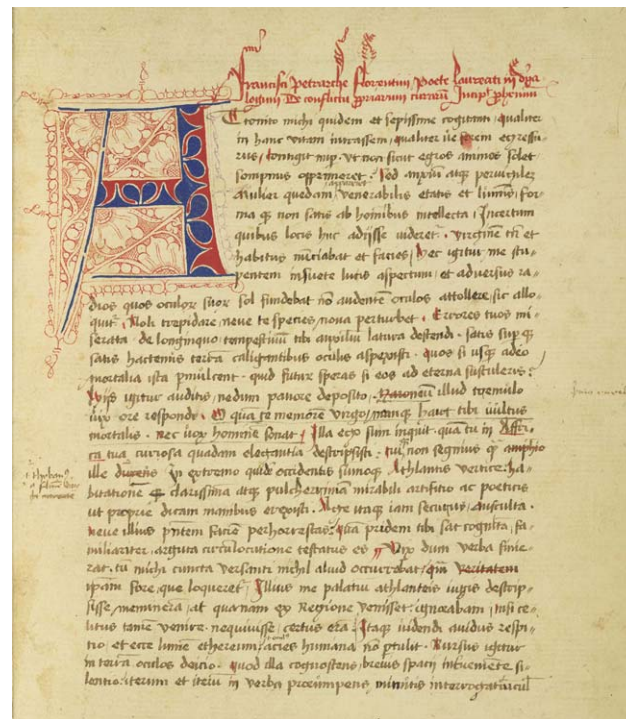 Francisci Petrarche Florentini Poete Laureati in dya
logum De conflictu curarum Incipit
A ttonito michi quidem et sepissime cogitanti qualiter
in hanc vitam intrassem, qualiter ve forem egressu
rus, contigit nup. vt non sicut egros animos solet
sompnus opprimeret. Sed anxium atq pervigilem
apparuit
Mulier quedam venerabilis etatis et luminis, for
ma q non satis ab hominibus intellecta, Incertum
quibus locis huc adijsse videret. Virginem tn et
habitus nunciabat et facies, Hec igitur me stu
pentem insuete lucis aspectum et adversus ra
dios quos oculorum suorum sol fundebat non audentem oculos attollere, sic allo
quitur. Noli trepidare, neve te species nova perturbet. Errores tuos mi
serata de longinquo tempestivum tibi auxilium latura destendi. satis sup q
satis hactenus terram caligantibus oculis aspexisti. quos si usq adeo
mortalia ista pmulcent. quid futurum speras si eos ad eterna sustuleris?
Hijs igitur auditis, nedum pavore deposito, Maroneum illud tremulo
vix ore respondi. O quam te memorem virgo, namque haut tibi vultus
mortalis. nec vox hominem sonat. Illa ego sum inquit. quam tu in Affri
ca tua curiosa quadam elegantia descripsisti. cui non segnius q amphio
ille dirceus in extremo quidem occidentis sumoq Athlantis vertice, ha
bitationem clarissimam atq pulcherrimam mirabili artificio ac poeticis
ut proprie dicam manibus erexisti. Age itaque iam securus, ausculta.
neve illius pntem faciem perhorrestas, quam pridem tibi sat cognitam, fa
miliariter, arguta circulocutione testatus es Vix dum verba finie
rat, cum michi cuncta versanti michil aliud occurrebat, quam Veritatem
ipam fore, que loqueret. Illius me palatium athlanteis iugis descrip
sisse, memineram, at quanam ex Regione venisset, ignorabam, nisi ce
litus tamen venire. nequivisse, certus eram. Itaque videndi avidus respi
tio, et ecce lumen ethereum, acies humana non ptulit. Rursus igitur
in terram oculos deicio. quod illa cognostens, brevis spacij interveniente si
lentio, iterum et iterum in verba prorumpens, minutis interrogatiunculis